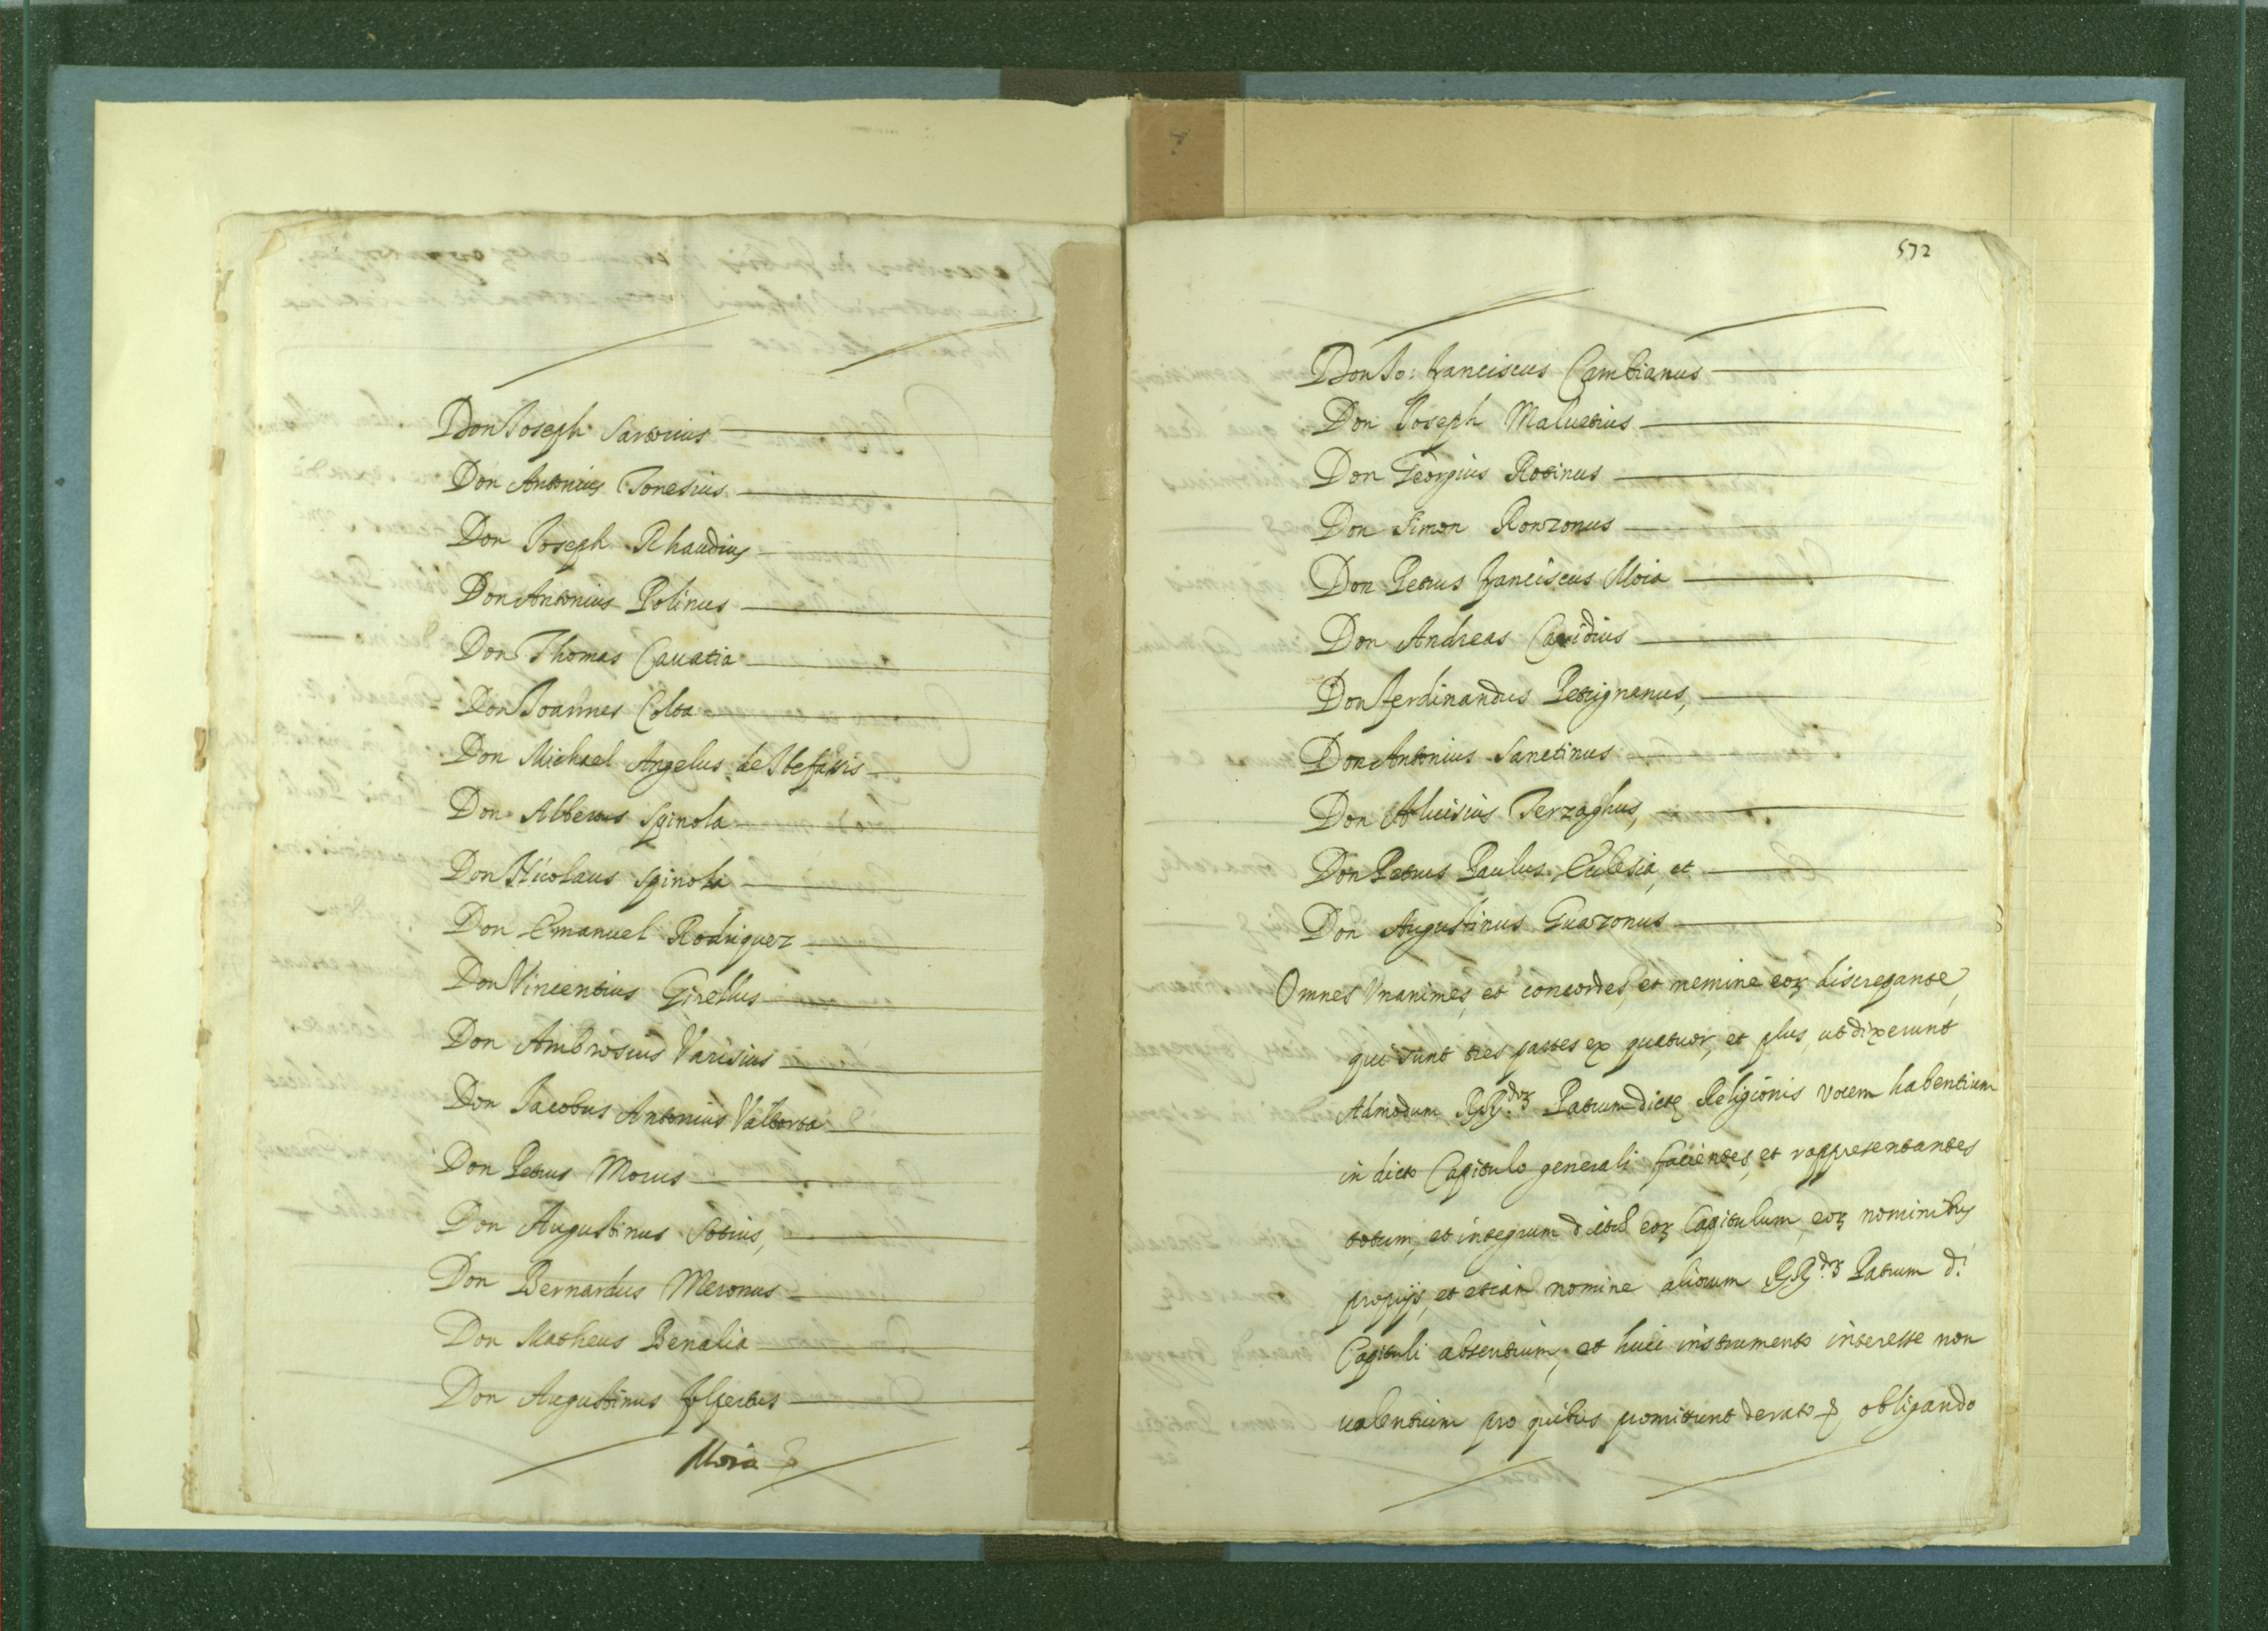 Don Joseph Sartorius
Don Antonius Tonesius
Don Joseph Rhaudius
Don Antonius Polinus
Don Thomas Cavatia
Don Joannes Colta
Don Michael Angelus de Stefanis
Don Albertus Spinola
Don Nicolaus Spinola
Don Emanuel Rodriguez
Don Vincentius Girellus
Don Ambrosius Varisius
Don Jacobus Antonius Valtorta
Don Petrus Morus
Don Augustinus Sotius,
Don Bernardus Meronus
Don Matheus Benalia
Don Augustinus
Moia
572
Don Jo: Franciscus Cambianus
Don Joseph Maluetius
Don Georgius Rotinus
Don Simon Ronzonus
Don Petrus Franciscus Moia
Don Andreas
Don Ferdinandus Petrignanus,
Don Antonius Sanctinus
Don Aluisius Terzaghus,
Don Petrus Paulus Eclesia, et
Don Augustinus Guazonus
Omnes Vnanimes, et concordes, et nemine eoꝝ discrepante,
qui sunt tres partes ex quatuor, et plus, ut dixerunt
Admodum RR.doꝝ Patrum dictę Religionis vocem habentium
in dicto Capitulo generali facientes, et rappresentantes
totum, et integrum eoꝝ Capitulum, eoꝝ nominibus
proprijs, et etiam nomine aliorum RR.doꝝ Patrum d.i
Capituli absentium, et huic instrumento interesse non
valentium pro quibus promittunt de rato &, obligando